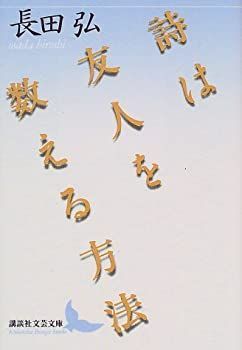 長田 弘
osada hiroshi
詩は
友人を
数える方法
講談社文芸文庫
Kodansha Bungei bunko